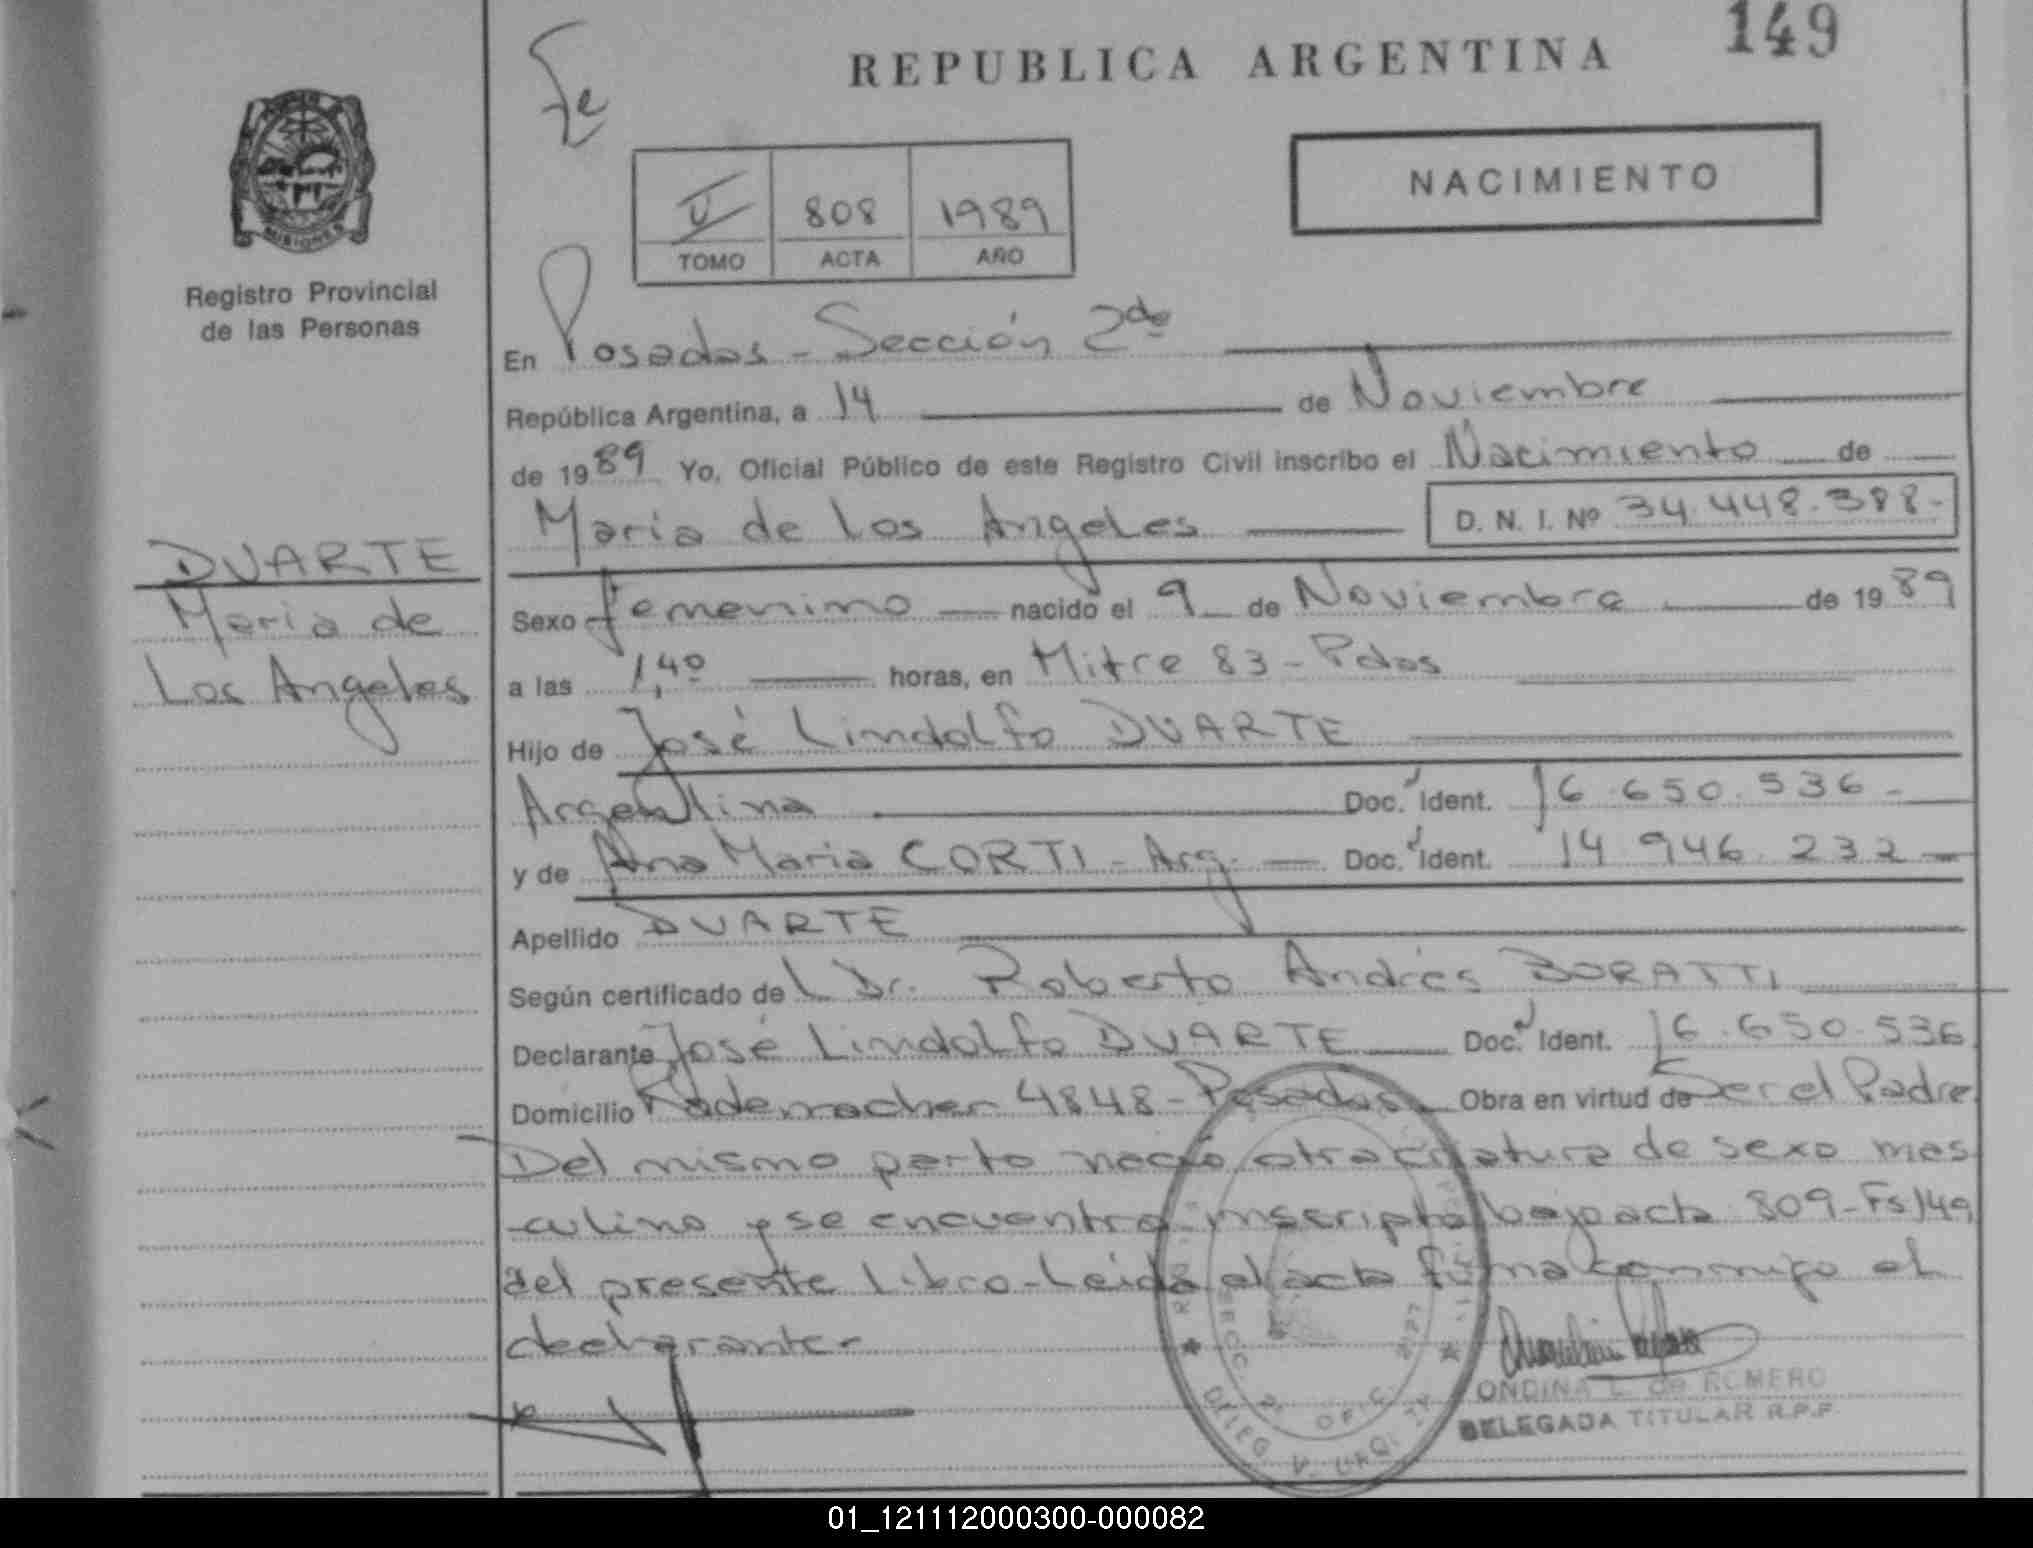 149
REPUBLICA ARGENTINA
Fe
NACIMIENTO
V 808 1989
TOMO ACTA AÑO
MISIONES
Registro Provincial
de las Personas
En Posadas - Sección 2da
República Argentina, a 14 de Noviembre
de 1989 Yo, Oficial Público de este Registro Civil inscribo el Nacimiento de
Maria de Los Angeles D. N. I. Nº 34.448.388-
DUARTE
Maria de
Los Angeles
Sexo femenino nacido el 9 de Noviembre de 1989
a las 1,40 horas, en Mitre 83 - Pdas
Hijo de José Lindolfo DUARTE
Argentina Doc. Ident. 16.650.536-
y de Ana Maria CORTI - Arg. Doc. Ident. 14.946.232
Apellido DUARTE
Según certificado de L Dr. Roberto Andrés BORATTI
Declarante José Lindolfo DUARTE Doc. Ident. 16.650.536
Domicilio Rademacher 4848 - Posadas Obra en virtud de Ser el Padre
Del mismo parto nació otra criatura de sexo mas
culino y se encuentra inscripta bajo acta 809-Fs 149
del presente Libro - Leida el acta firma conmigo el
declarante-
ONDINA L. de ROMERO
DELEGADA TITULAR R.P.P.
01_121112000300-000082